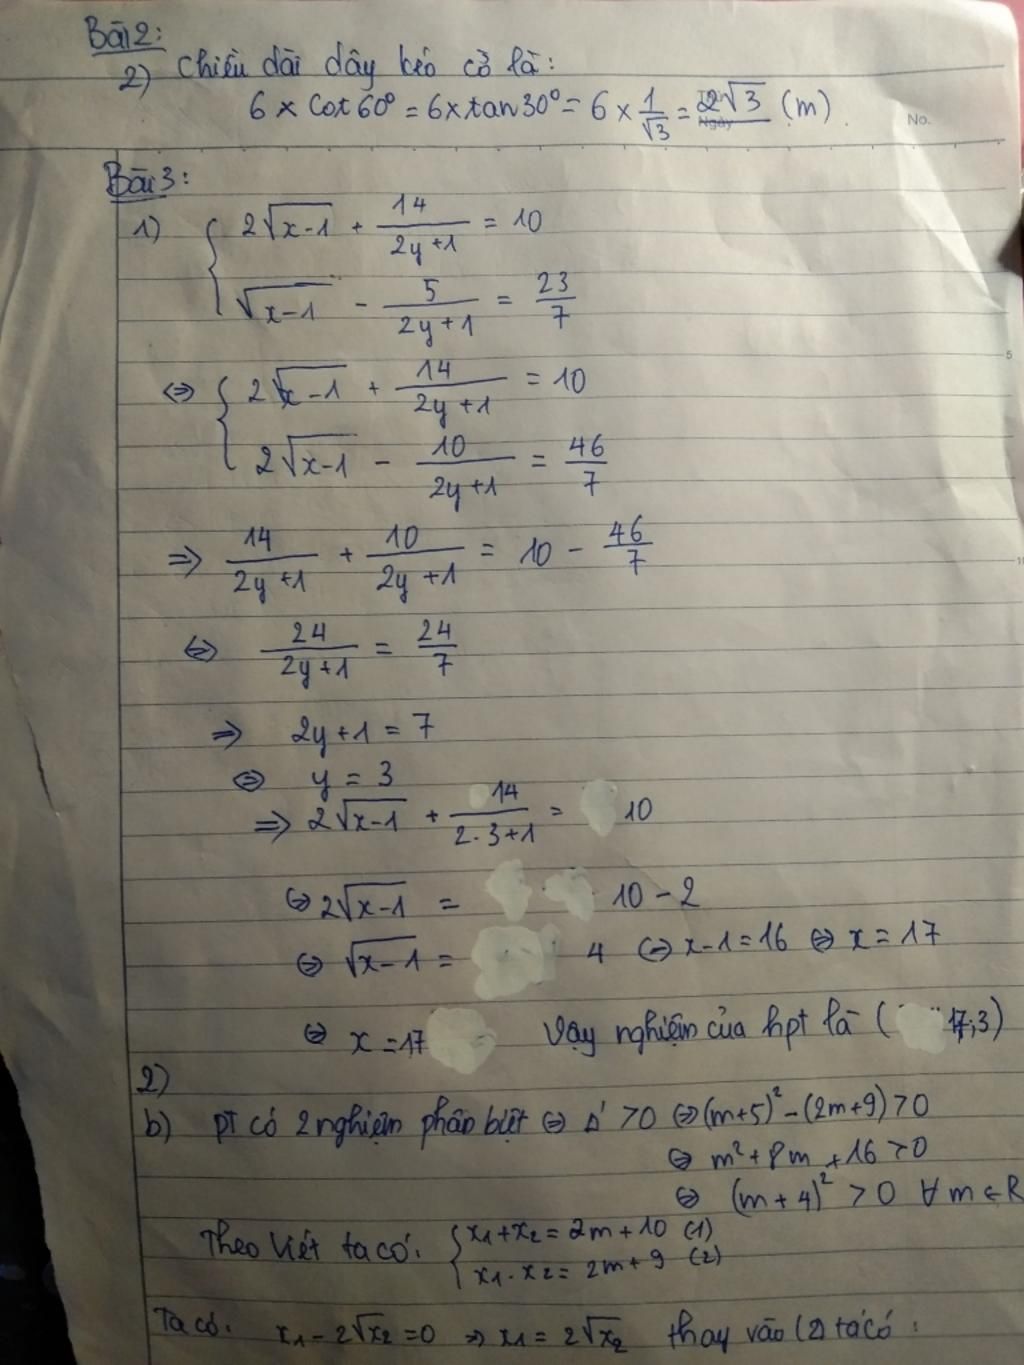 Bài 2:
2) Chiều dài dây kéo cờ là:
6 × cot 60° = 6 × tan 30° = 6 × 1/√3 = 2√3 (m)
No.
Bài 3:
1) { 2√(x-1) + 14/(2y+1) = 10
√(x-1) - 5/(2y+1) = 23/7
⇔ { 2√(x-1) + 14/(2y+1) = 10
2√(x-1) - 10/(2y+1) = 46/7
⇒ 14/(2y+1) + 10/(2y+1) = 10 - 46/7
⇔ 24/(2y+1) = 24/7
⇒ 2y+1 = 7
⇔ y = 3
⇒ 2√(x-1) + 14/(2.3+1) = 10
⇔ 2√(x-1) = 10 - 2
⇔ √(x-1) = 4 ⇔ x-1 = 16 ⇔ x = 17
⇔ x = 17 Vậy nghiệm của hpt là (17;3)
2)
b) PT có 2 nghiệm phân biệt ⇔ Δ' > 0 ⇔ (m+5)² - (2m+9) > 0
⇔ m² + 8m + 16 > 0
⇔ (m+4)² > 0 ∀ m ∈ R
Theo Viét ta có: { x₁ + x₂ = 2m + 10 (1)
x₁ . x₂ = 2m + 9 (2)
Ta có: x₁ - 2√x₂ = 0 ⇒ x₁ = 2√x₂ thay vào (2) ta có :